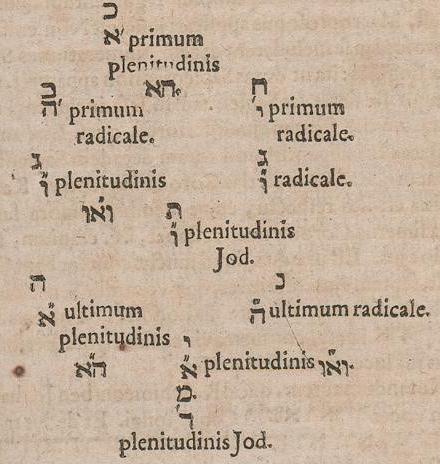 ט
א׳ primum
plenitudinis
הא.
ט ח
ה׳ primum י׳ primum
radicale. radicale.
ג ג
ו plenitudinis ו radicale.
ואו ת
ו plenitudinis
Jod.
ה נ
א ultimum ה ultimum radicale.
plenitudinis י
הא א plenitudinis ואו.
plenitudinis Jod.